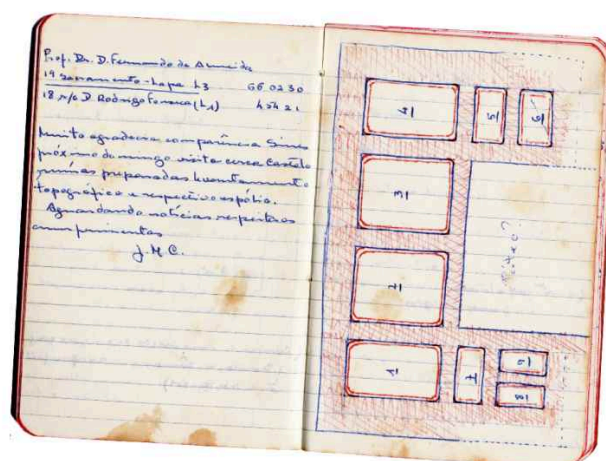 Prof. Dr. D. Fernando de Almeida
19 Sacramento-Lapa L3 66 02 30
18 r/c D. Rodrigo Fonseca (L1)
Muito agradecia comparência Sines
próximo domingo visita cerca Castelo
ruínas preparadas levantamento
topográfico e respectivo espólio.
Aguardando notícias respeitosos
cumprimentos
J. M. C.
4
5
6
3
2
1
7
9
8